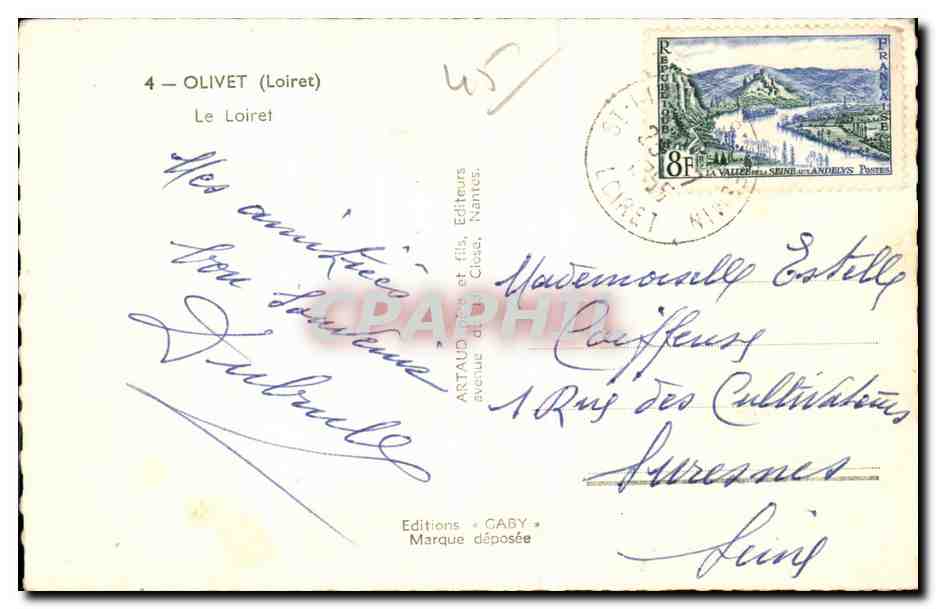 4 — OLIVET (Loiret)
Le Loiret
45
Mes amitiés
bon souvenir
Dubrulle
ARTAUD Père et fils, Editeurs
avenue du Close, Nantes.
Editions « GABY »
Marque déposée
REPUBLIQUE FRANÇAISE
8F
LA VALLÉE DE LA SEINE AUX ANDELYS POSTES
LOIRET
CPAPHIL
Mademoiselle Estelle
Coiffeuse
1 Rue des Cultivateurs
Suresnes
Seine